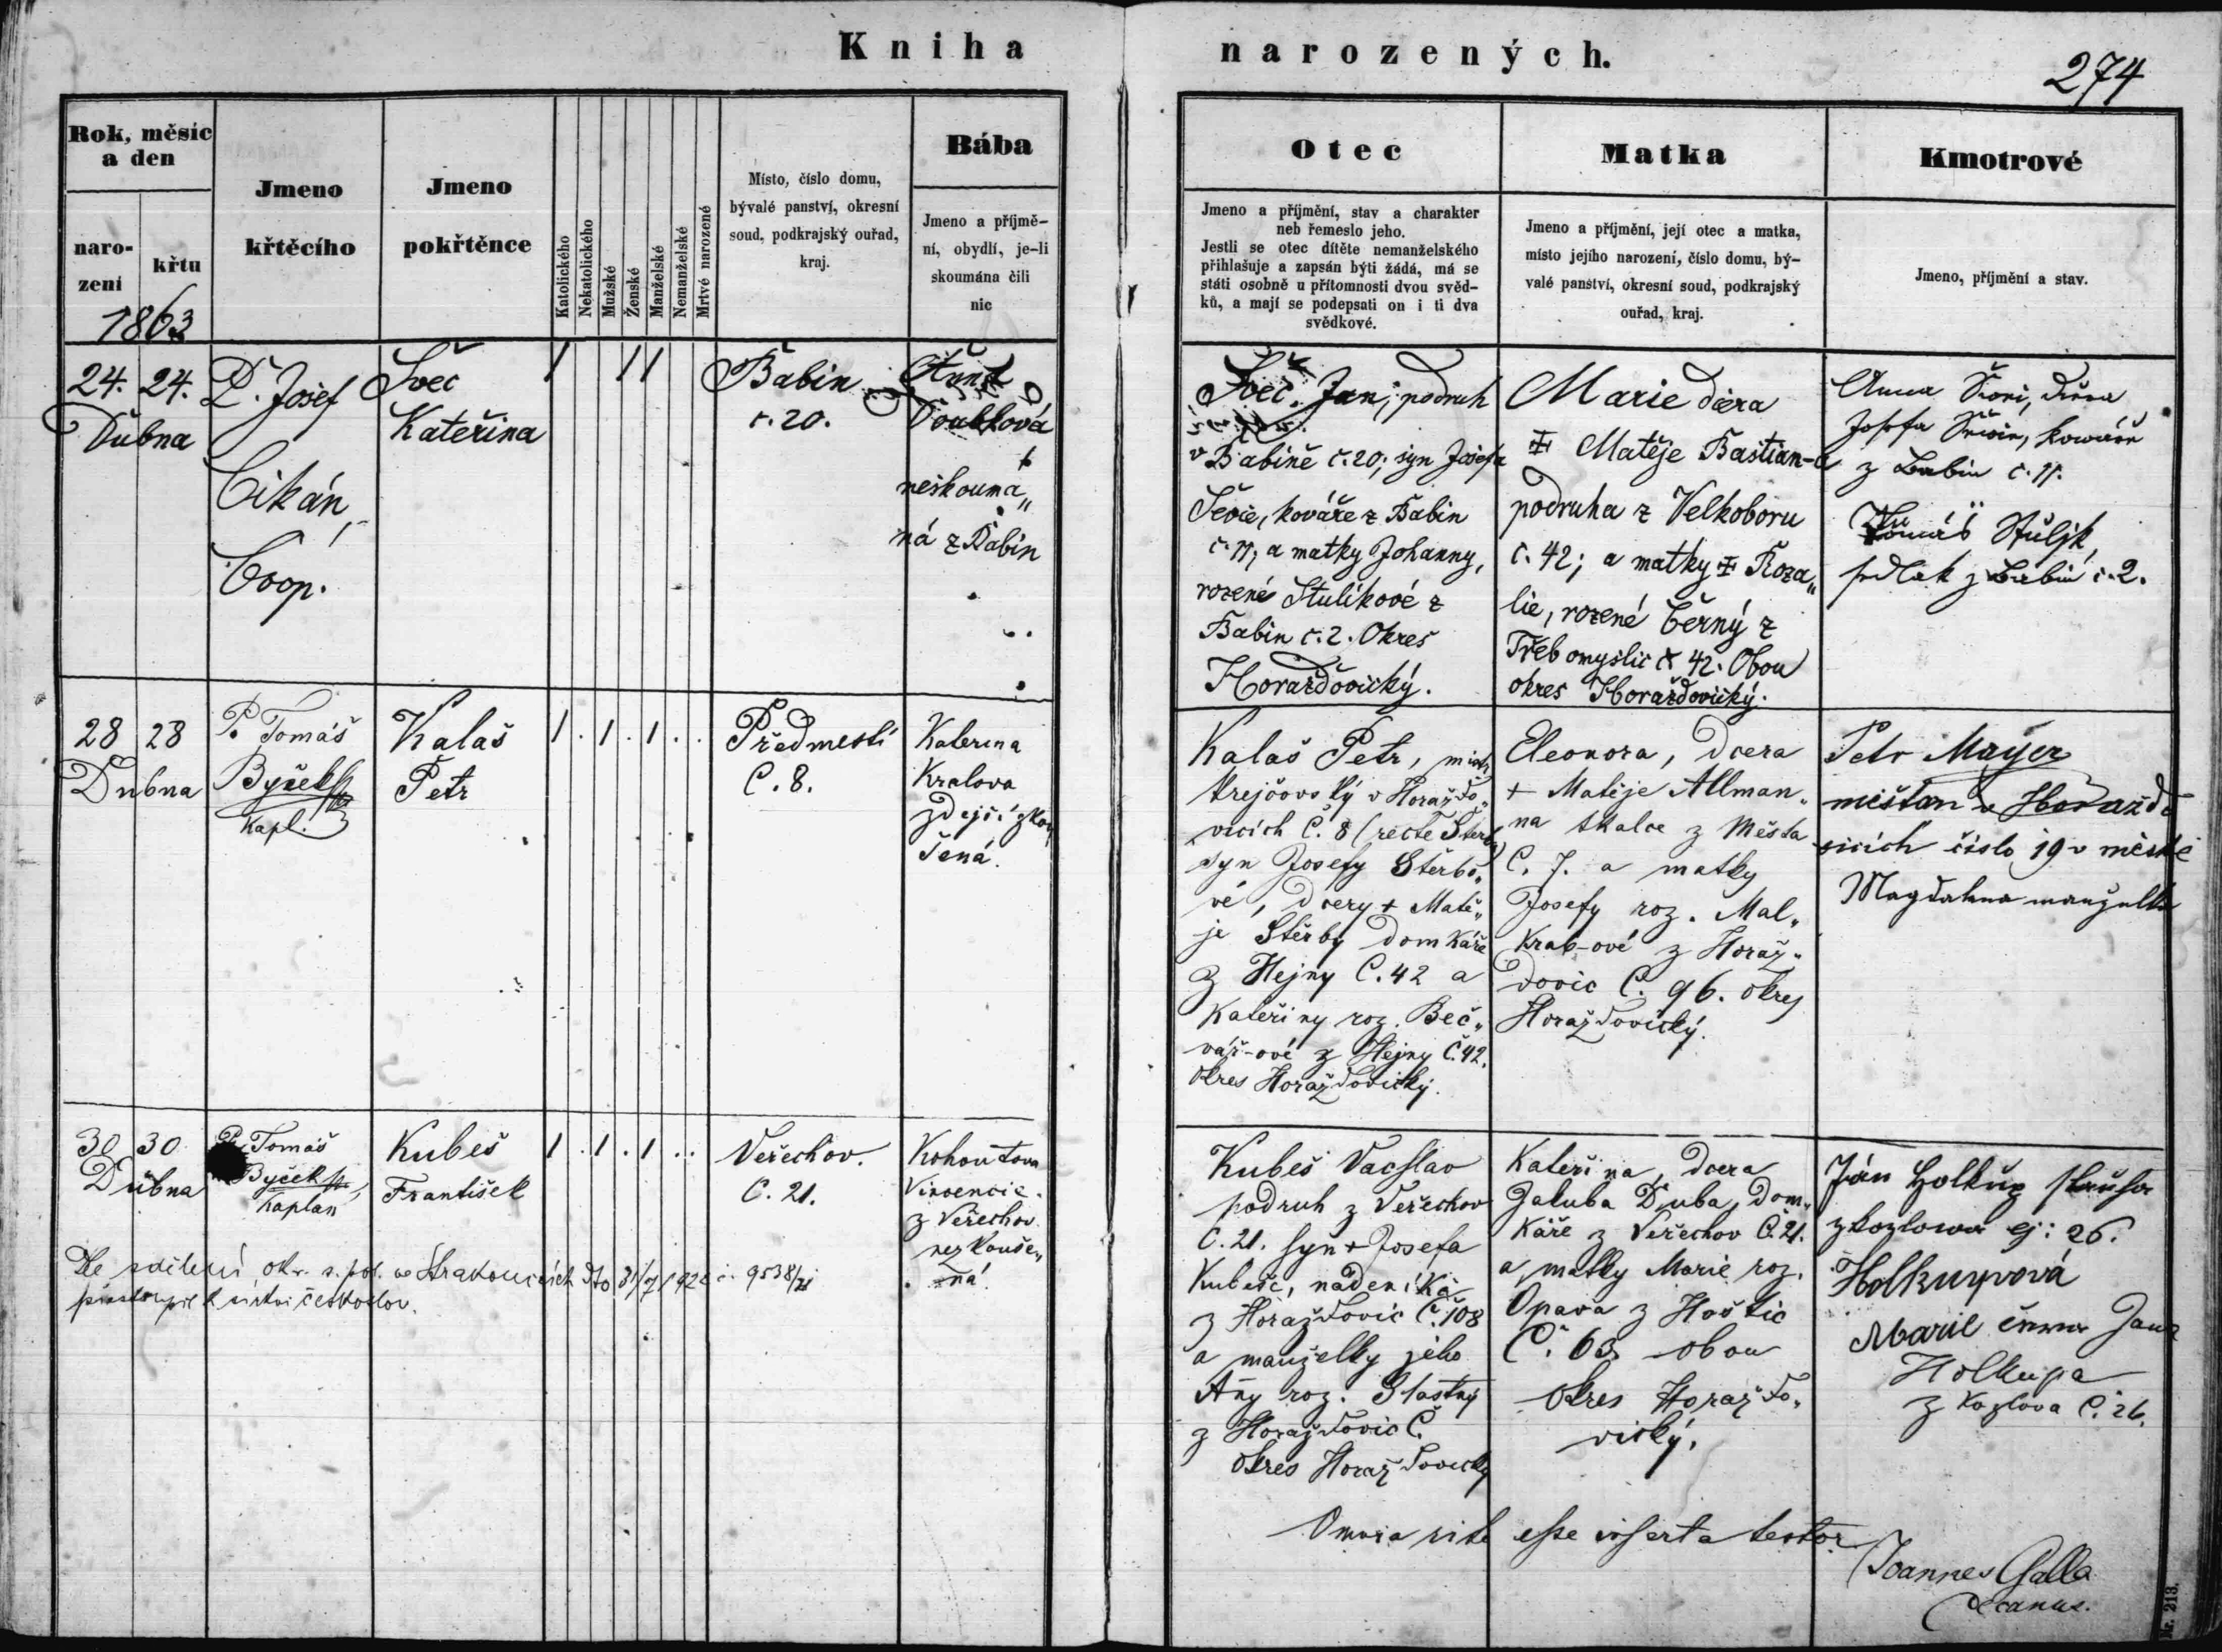 Kniha narozených.
274
Rok, měsíc
a den
naro-
zení
křtu
1863
Jmeno
křtěcího
Jmeno
pokřtěnce
Katolického
Nekatolického
Mužské
Ženské
Manželské
Nemanželské
Mrtvé narozené
Místo, číslo domu,
bývalé panství, okresní
soud, podkrajský ouřad,
kraj.
Bába
Jmeno a příjmě-
ní, obydlí, je-li
skoumána čili
nic
Otec
Jmeno a příjmění, stav a charakter
neb řemeslo jeho.
Jestli se otec dítěte nemanželského
přihlašuje a zapsán býti žádá, má se
státi osobně u přítomnosti dvou svěd-
ků, a mají se podepsati on i ti dva
svědkové.
Matka
Jmeno a příjmění, její otec a matka,
místo jejího narození, číslo domu, bý-
valé panství, okresní soud, podkrajský
ouřad, kraj.
Kmotrové
Jmeno, příjmění a stav.
24. 24.
Dubna
P. Josef
Cikán,
Coop.
Švec
Kateřina
1 1 1
Babin
č. 20.
Doubková
neskouma„
ná z Babin
Švec Jan, podruh
v Babině č. 20; syn Josefa
Ševce, kováře z Babin
č. 11; a matky Johanny,
rozené Stulíkové z
Babin č. 2. Okres
Horažďovický.
Marie dcera
Matěje Bastian-a
podruha z Velkoboru
č. 42; a matky Roza„
lie, rozené Černý z
Třebomyslic č. 42. Obou
okres Horažďovický.
Anna
Josefa kováře
z Babin č. 11.
Tomáš Stulík,
sedlák z Babin č. 2.
28 28
Dubna
P. Tomáš
Byček
Kapl.
Kalaš
Petr
1 . 1 . 1 . .
Předmestí
C. 8.
Katerina
Kralova
zdejší zkou
šená.
Kalaš Petr, mistr
krejčovský v Horažďo„
vicích C. 8 (recte Štěrba)
syn Josefy Štěrbo„
vé, dcery + Matě„
je Štěrby domkáře
z Hejny C. 42 a
Kateřiny roz. Beč„
vář-ové z Hejny Č. 42.
okres Horažďovický.
Eleonora, dcera
+ Matěje Allman„
na tkalce z Města
C. 7. a matky
Josefy roz. Mal„
krab-ové z Horaž„
dovic C. 96. okres
Horažďovický.
Petr Mayer
měštan v Horaždo
vicich číslo 19 v městě
Magdalena manželka
30 30
Dubna
P. Tomáš
Byček
Kaplan
Kubeš
František
1 . 1 . 1 . .
Veřechov.
C. 21.
Kohoutova
Vincencie
z Veřechov
nezkouše„
ná
Kubeš Vacslav
podruh z Veřechov
C. 21. syn + Josefa
Kubeše, nádeníka
z Horažďovic Č. 108
a manželky jeho
Any roz. Šťastný
z Horažďovic Č.
okres Horažďovický
Kateřina, dcera
Jakuba Duba, dom„
káře z Veřechov Č. 21.
a matky Marie roz.
Opava z Hoštic
Č. 63 obou
okres Horažďo„
vický.
Ján Holkup
z Kozlowa čj: 26.
Holkupová
Marie Jana
Holkupa
z Kozlova Č. 26.
Dle sdělení ok. s. pol. ve Strakonicích dto 31/7 192 č. 9538/21
přistoupil k církvi českoslov.
Omnia rite esse inserta testor
Joannes Galla
Decanus.
Nr. 213.